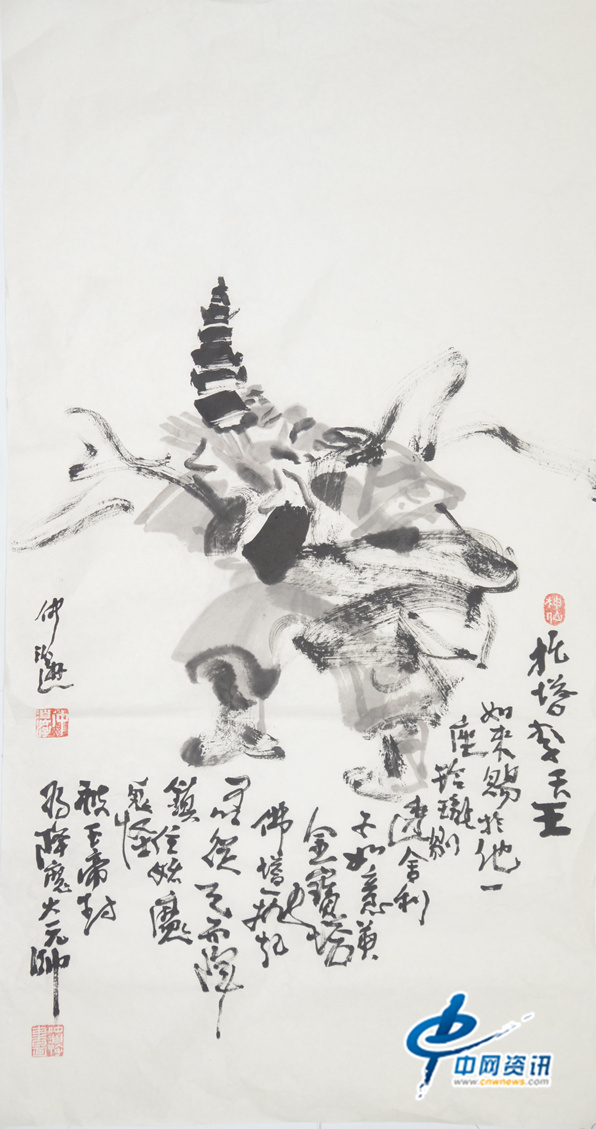 托塔李天王
如来賜於他一
座玲瓏剔
透舍利
子如意黄
金寶塔
佛塔一
從天而降
鎮住妖魔
鬼怪
被玉帝封
為降魔大元帥
中网资讯
www.cnwnews.com